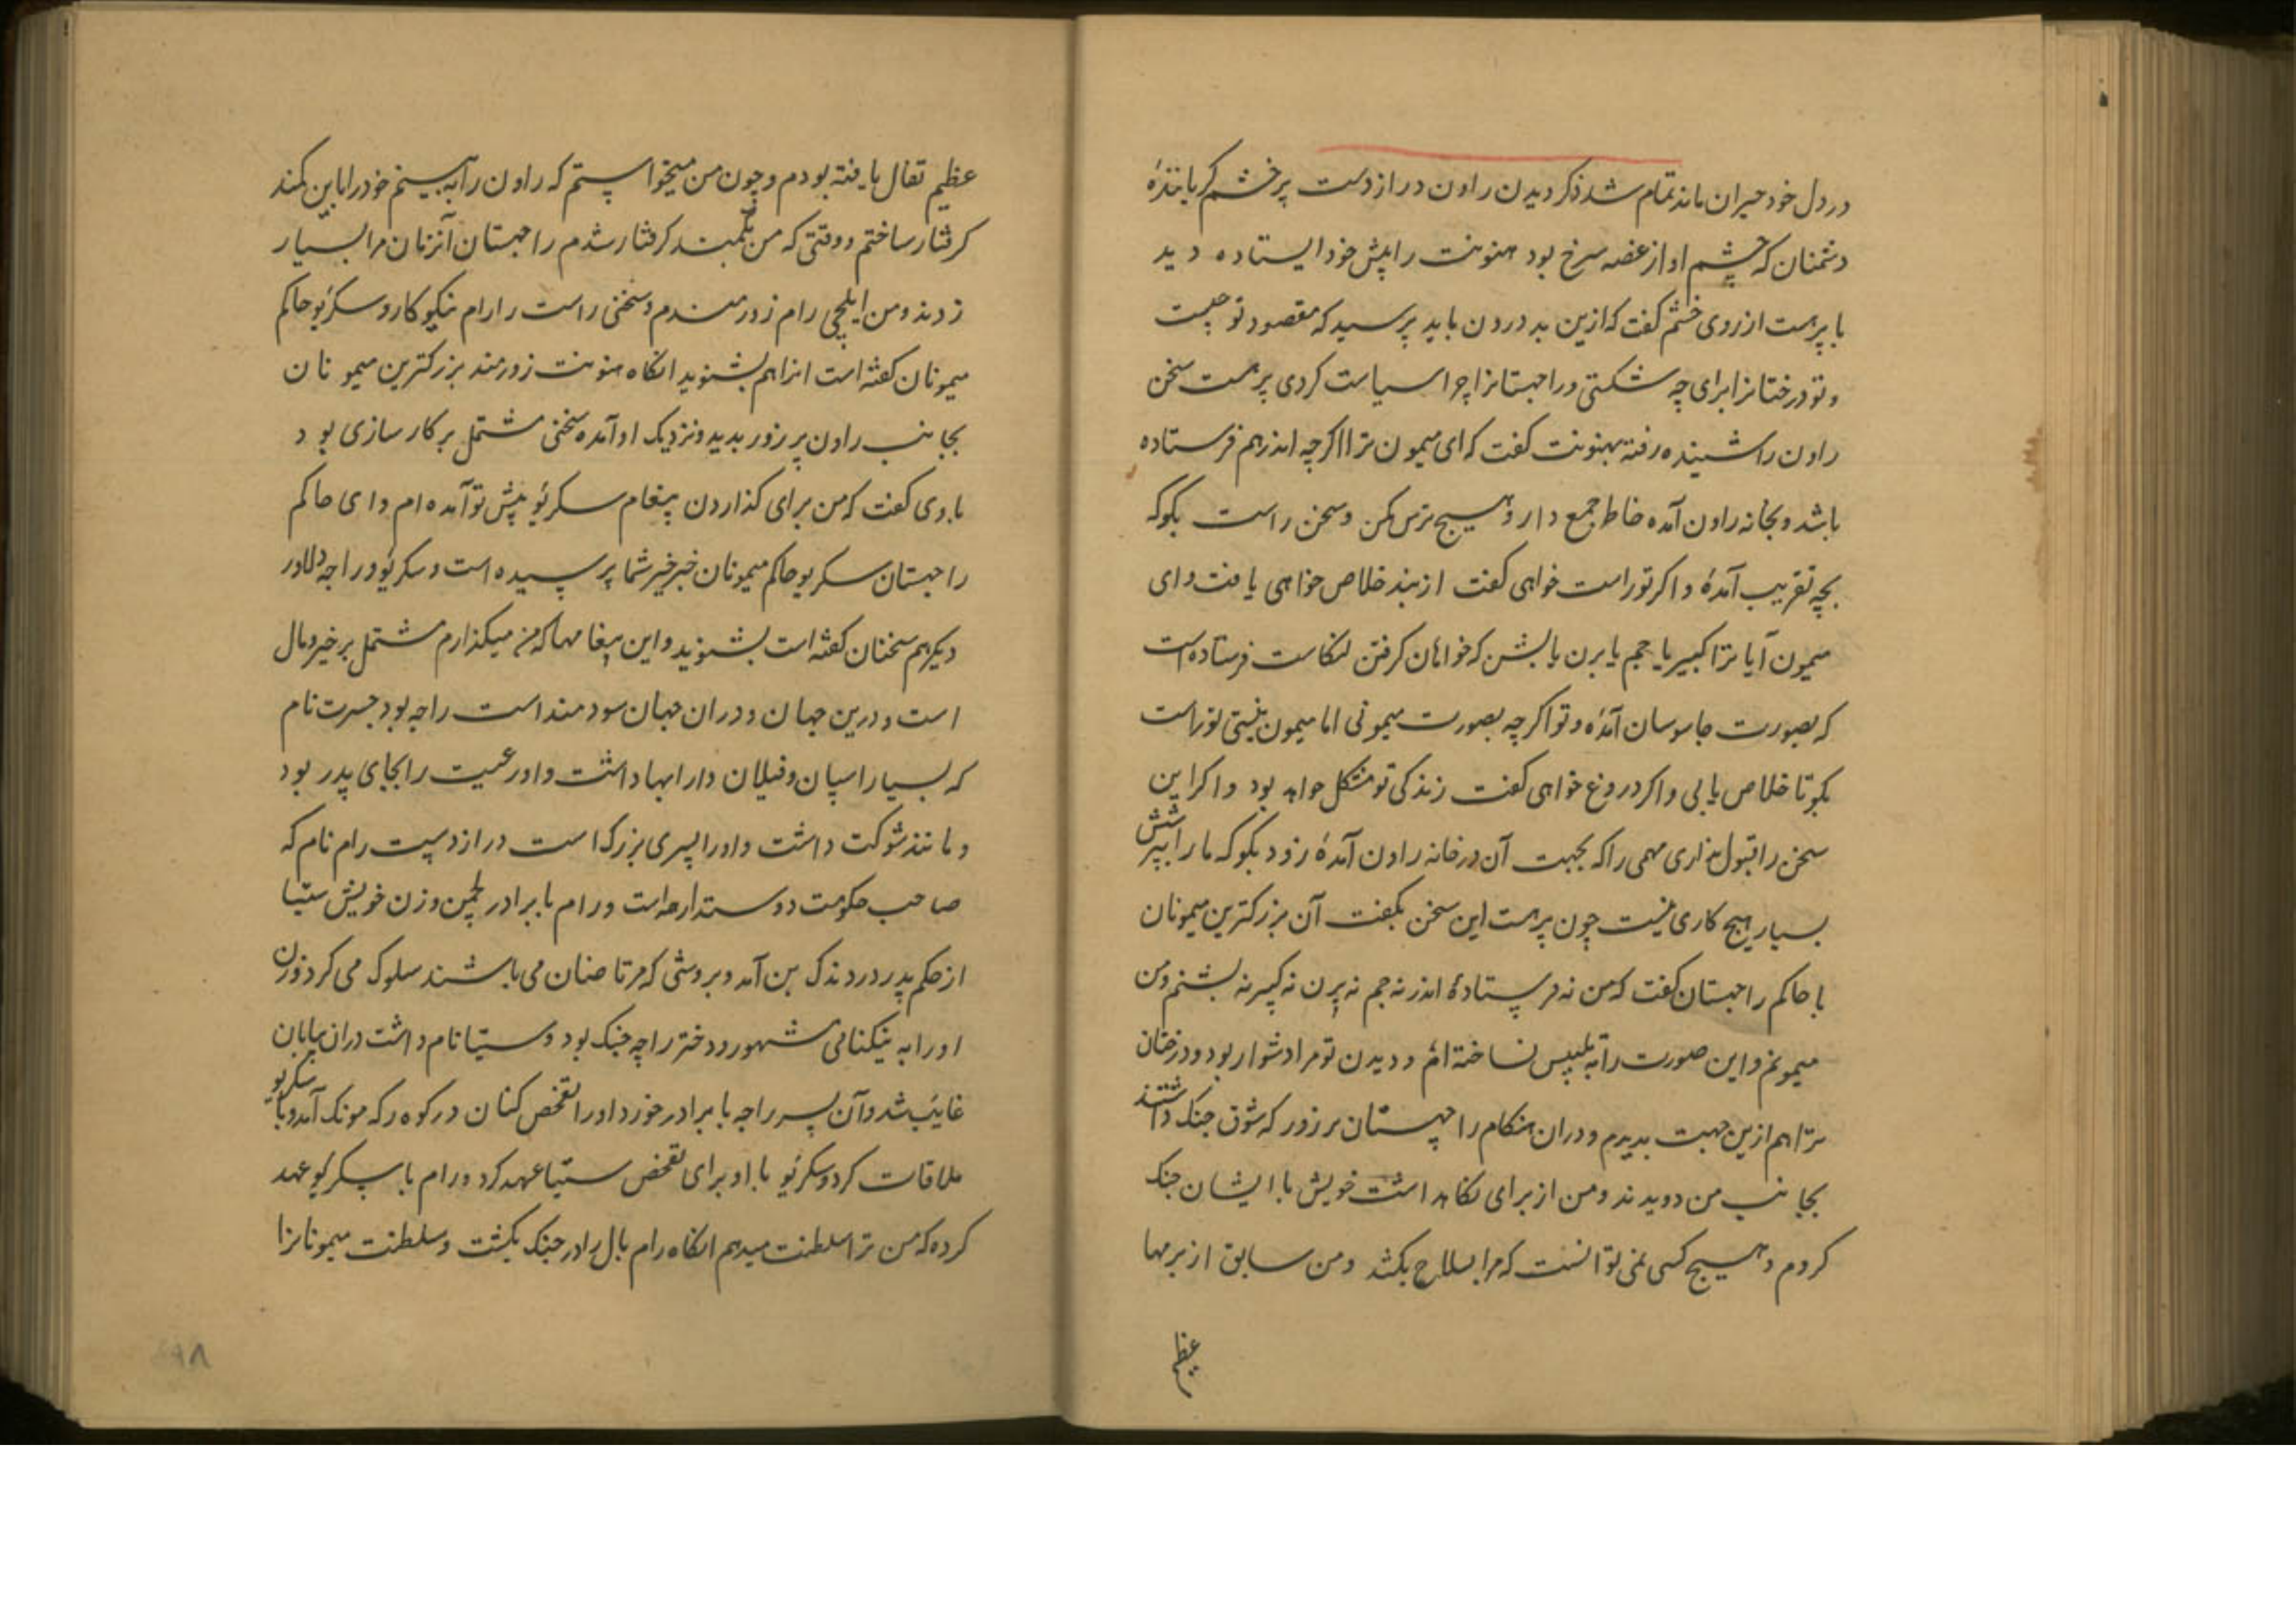 در دل خود حیران ماند تمام شد ذکر دیدن راون دراز دست پر خشم گریاننده
دشمنان که چشم او از غصه سرخ بود هنونت را پیش خود ایستاده دید
با پرهست از روی خشم گفت که ازین بد درون باید پرسید که مقصود تو چیست
و تو درختانرا برای چه شکستی و راچهستانرا چرا سیاست کردی پرهست سخن
راون را شنیده رفته بهنونت گفت که ای میمون ترا اگرچه اندر هم فرستاده
باشد و بخانه راون آمده خاطر جمع دار و هیچ ترس مکن و سخن راست بگو که
بچه تقریب آمدهٔ و اگر تو راست خواهی گفت از بند خلاص خواهی یافت و ای
میمون آیا ترا کبیر یا جم یا برن یا بشن که خواهان گرفتن لنکاست فرستاده است
که بصورت جاسوسان آمدهٔ و تو اگرچه بصورت میمونی اما میمون نیستی تو راست
بگو تا خلاص یابی و اگر دروغ خواهی گفت زندگی تو مشکل خواهد بود و اگر این
سخن را قبول نداری مهمی را که بجهت آن در خانه راون آمدهٔ زود بگو که ما را پرسش
بسیار هیچ کاری نیست چون پرهست این سخن بگفت آن بزرگترین میمونان
با حاکم راچهستان گفت که من نه فرستادهٔ اندر نه جم نه برن نه کبیر نه بشنم و من
میمونم و این صورت را به تلبیس نساخته ام و دیدن تو مرا دشوار بود و درختان
ترا هم ازین جهت بریدم و دران هنگام راچهستان پر زور که شوق جنگ داشتند
بجانب من دویدند و من از برای نگاهداشت خویش با ایشان جنگ
کردم و هیچ کسی نمی توانست که مرا بسلاح بکشد و من سابق از برمها
عظیم
عظیم تفال یافته بودم و چون من میخواستم که راون را به بینم خود را باین کمند
گرفتار ساختم و وقتی که من بکمند گرفتار شدم راچهستان آنزمان مرا بسیار
زدند و من ایلچی رام زورمندم و سخنی راست را رام نیکوکار و سکریو حاکم
میمونان گفته است انرا هم بشنوید انگاه هنونت زورمند بزرگترین میمونان
بجانب راون پر زور بدید و نزدیک او آمده سخنی مشتمل بر کارسازی بود
با وی گفت که من برای گذاردن پیغام سکریو پیش تو آمده ام و ای حاکم
راچهستان سکریو حاکم میمونان خبر خیر شما پرسیده است و سکریو و راجه دلاور
دیگر هم سخنان گفته است بشنوید و این پیغامها که من میگذارم مشتمل بر خیر و مال
است و درین جهان و دران جهان سودمند است راجه بود جسرت نام
که بسیار اسپان و فیلان و ارابها داشت و او رعیت را بجای پدر بود
و مانند شوکت داشت و او را پسری بزرگ است دراز دست رام نام که
صاحب حکومت دوستدار است و رام با برادر لچمن و زن خویش ستیا
از حکم پدر در دندک بن آمد و بروشی که مرتاضان می باشند سلوک می کرد و زن
او را به نیکنامی مشهور و دختر راجه جنک بود و ستیا نام داشت دران بیابان
غایب شد و آن پسر راجه با برادر خورد او را تفحص کنان در کوه رکه مونک آمد و با سکریو
ملاقات کرد و سکریو با او برای تفحص ستیا عهد کرد و رام با سکریو عهد
کرده که من ترا سلطنت میدهم انگاه رام بال را در جنگ بکشت و سلطنت میمونانرا